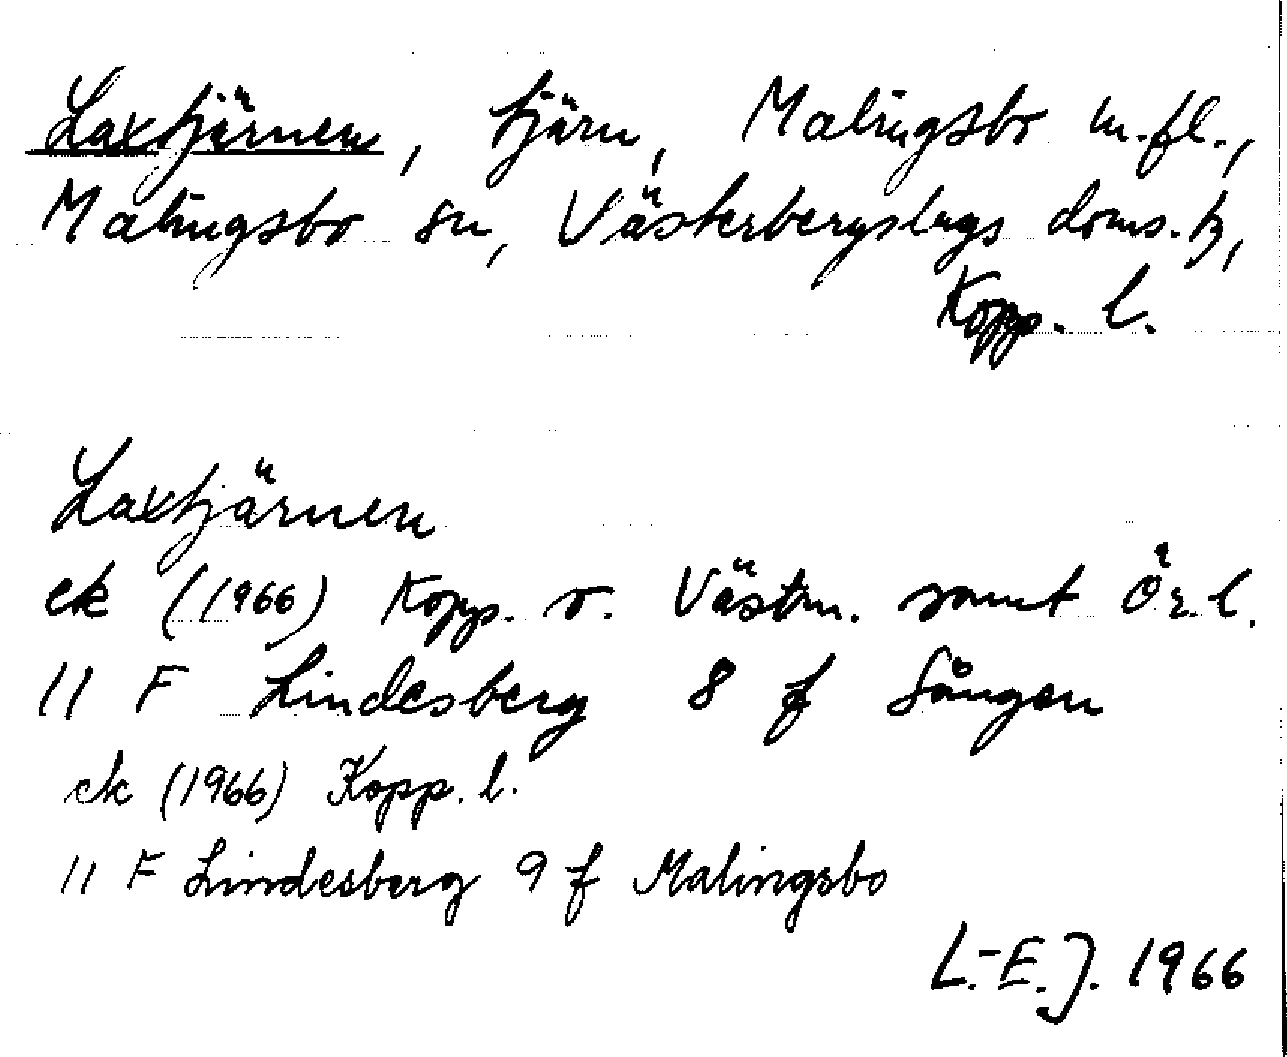 Laxtjärnen, tjärn, Malingsbo m.fl.,
Malingsbo sn, Västerbergslags doms.h,
Kopp. l.
Laxtjärnen
ek (1966) Kopp. o. Västm. samt Ör. l.
11 F Lindesberg 8 f Sången
ek (1966) Kopp. l.
11 F Lindesberg 9 f Malingsbo
L.-E. J. 1966